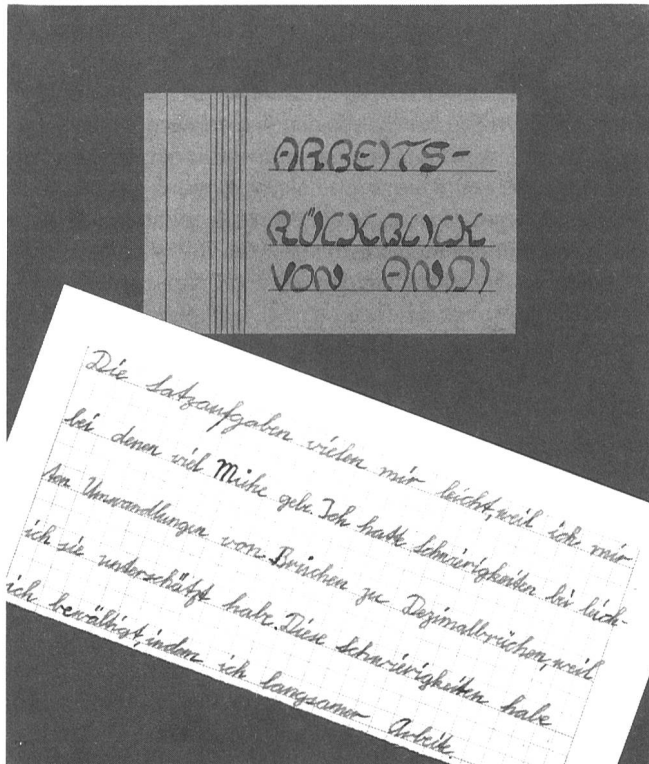 ARBEITS-
RÜCKBLICK
VON ANDI
Die Satzaufgaben vielen mir leicht, weil ich mir
bei denen viel Mühe gebe. Ich hatte Schwierigkeiten bei leich-
ten Umwandlungen von Brüchen zu Dezimalbrüchen, weil
ich sie unterschätzt habe. Diese Schwierigkeiten habe
ich bewältigt, indem ich langsamer Arbeite.